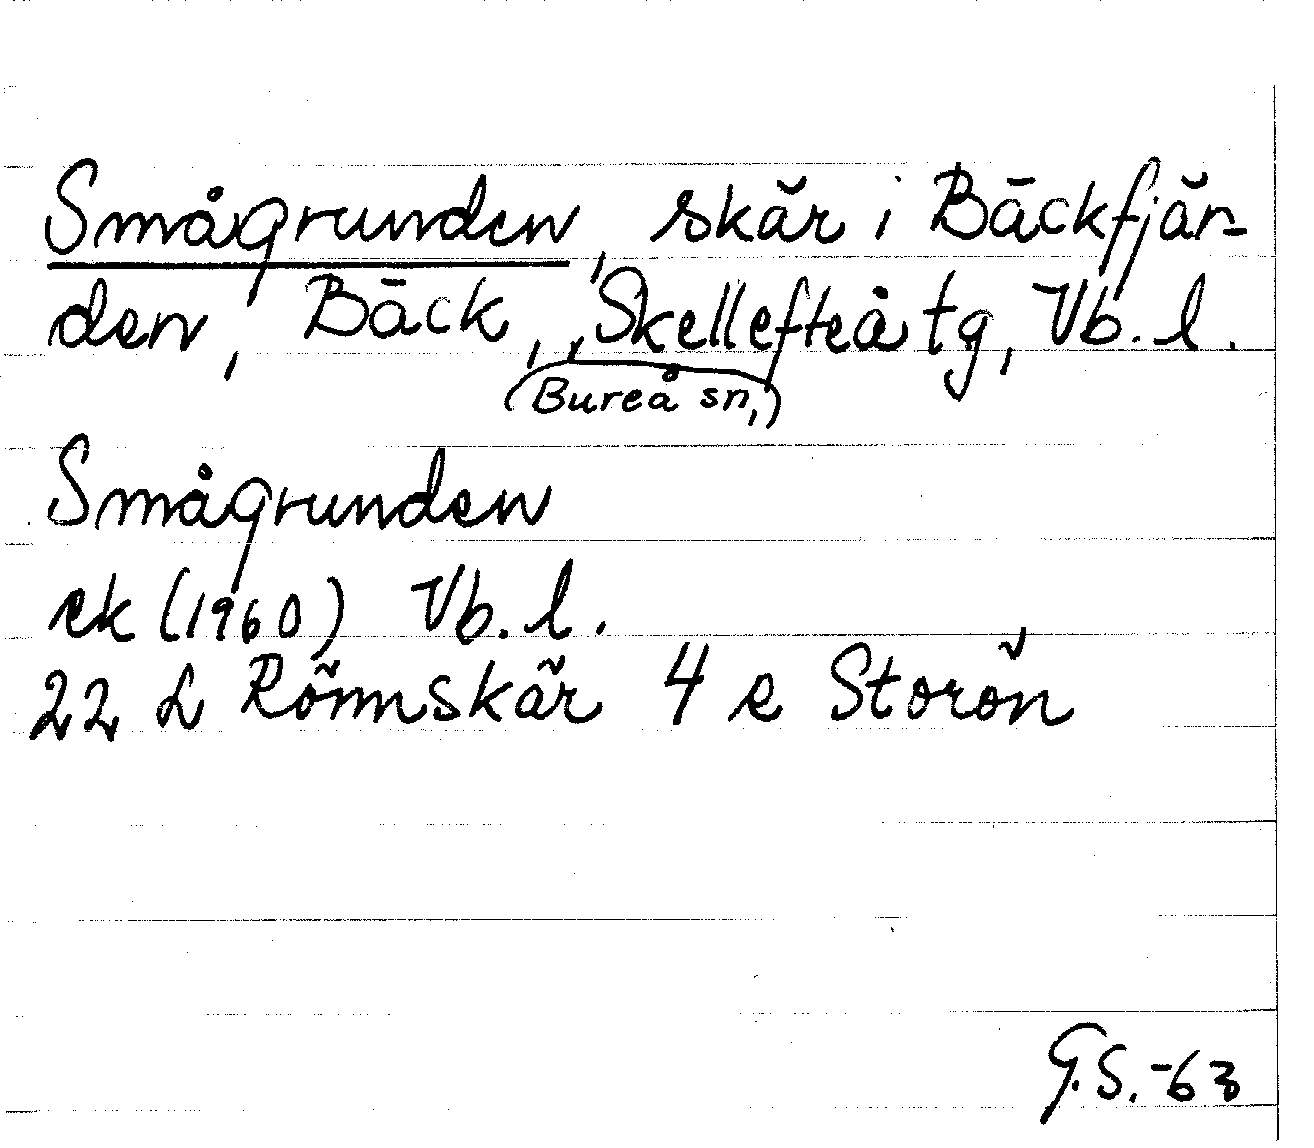 Smågrunden, skär i Bäckfjär-
den, Bäck, Skellefteå tg, Vb. l.
(Bureå sn,)
Smågrunden
ek (1960) Vb. l.
22 L Rönnskär 4 e Storön
G.S.-63